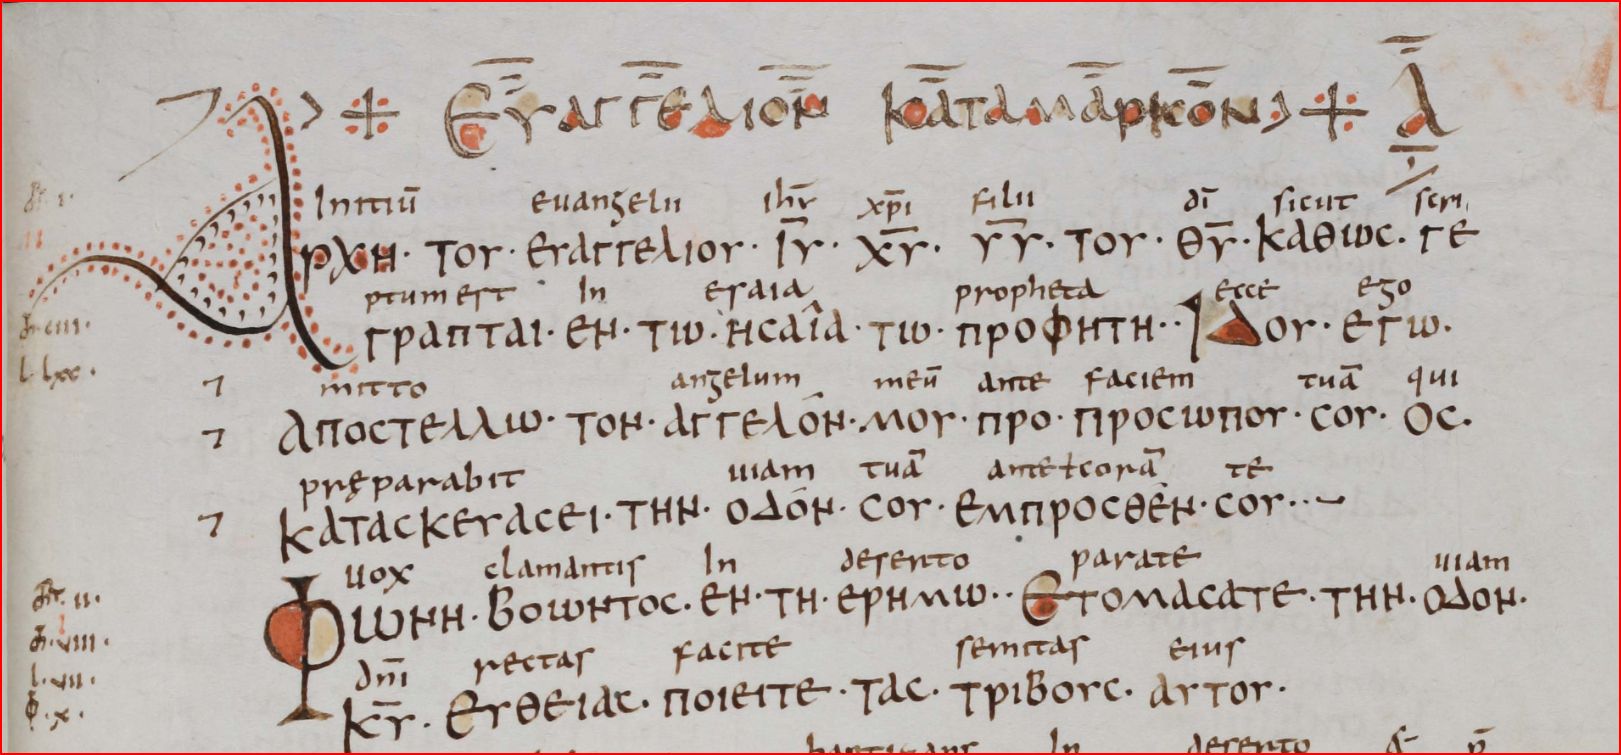 + ΕΥΑΓΓΕΛΙΟΝ ΚΑΤΑ ΜΑΡΚΟΝ + Α
Initiū euangelii ihū xp̄i filii dī sicut scri
ΑΡΧΗ· ΤΟΥ· ΕΥΑΓΓΕΛΙΟΥ· ΙΥ̅· ΧΥ̅· ΥΥ̅· ΤΟΥ· ΘΥ̅· ΚΑΘΩС· ΓΕ
ptum est In esaia propheta ecce ego
ΓΡΑΠΤΑΙ· ΕΝ· ΤΩ· ΗСΑΙΑ· ΤΩ· ΠΡΟΦΗΤΗ·· ΙΔΟΥ· ΕΓΩ·
mitto angelum meū ante faciem tuā qui
ΑΠΟСΤΕΛΛΩ· ΤΟΝ· ΑΓΓΕΛΟΝ· ΜΟΥ· ΠΡΟ· ΠΡΟСΩΠΟΥ· СΟΥ· ΟС·
pręparabit uiam tuā ante ł corā te
ΚΑΤΑСΚΕΥΑСΕΙ· ΤΗΝ· ΟΔΟΝ· СΟΥ· ΕΜΠΡΟСΘΕΝ· СΟΥ··
uox clamantis In deserto parate uiam
ΦΩΝΗ· ΒΟΩΝΤΟС· ΕΝ· ΤΗ· ΕΡΗΜΩ·· ΕΤΟΜΑСΑΤΕ· ΤΗΝ· ΟΔΟΝ·
dn̄i rectas facite semitas eius
ΚΥ̅· ΕΥΘΕΙΑС· ΠΟΙΕΙΤΕ· ΤΑС· ΤΡΙΒΟΥС· ΑΥΤΟΥ·
In deserto